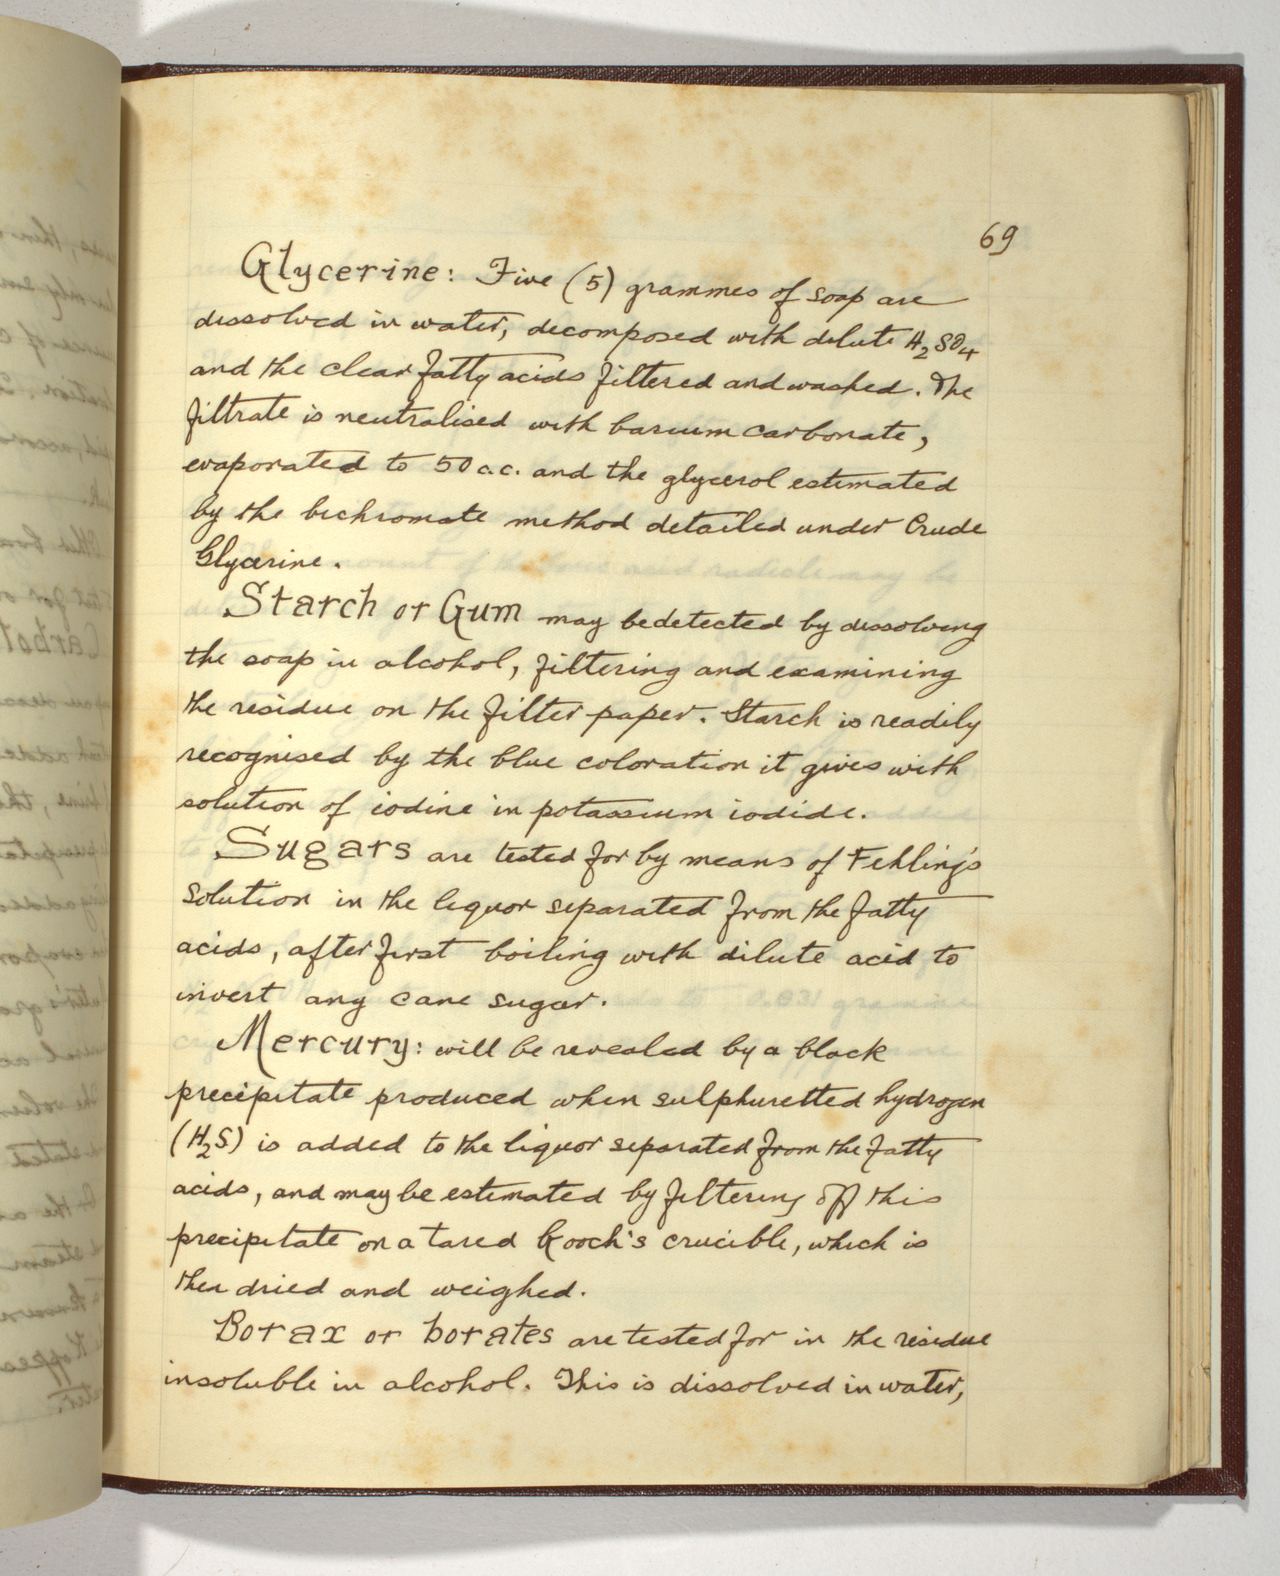 69
Glycerine: Five (5) grammes of soap are
dissolved in water, decomposed with dilute H₂SO₄
and the clear fatty acids filtered and washed. The
filtrate is neutralised with barium carbonate,
evaporated to 50 c.c. and the glycerol estimated
by the bichromate method detailed under Crude
Glycerine.
Starch or Gum may be detected by dissolving
the soap in alcohol, filtering and examining
the residue on the filter paper. Starch is readily
recognised by the blue coloration it gives with
solution of iodine in potassium iodide.
Sugars are tested for by means of Fehling's
solution in the liquor separated from the fatty
acids, after first boiling with dilute acid to
invert any cane sugar.
Mercury: will be revealed by a black
precipitate produced when sulphuretted hydrogen
(H₂S) is added to the liquor separated from the fatty
acids, and may be estimated by filtering off this
precipitate on a tared Gooch's crucible, which is
then dried and weighed.
Borax or borates are tested for in the residue
insoluble in alcohol. This is dissolved in water,